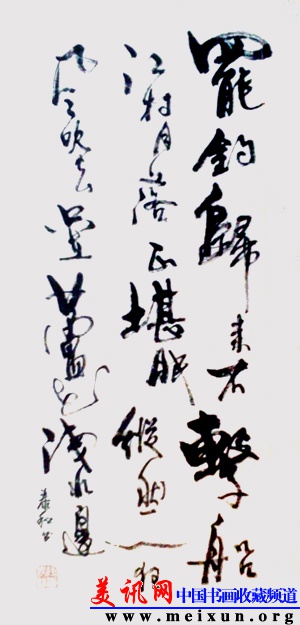 罷釣歸来不擊船
江村月落正堪眠縱然一夜
风吹去只在蘆花浅水邊
泰和书
美讯网 中国书画收藏频道
www.meixun.org